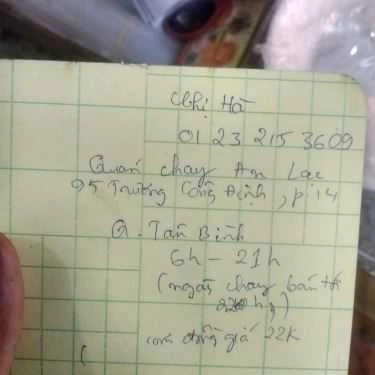 Chị Hà
01 23 215 3609
Quán chay An Lạc
95 Trương Công Định, p.14
Q. Tân Bình
6h – 21h
(ngày chay bán
cơm đồng giá 22K
(